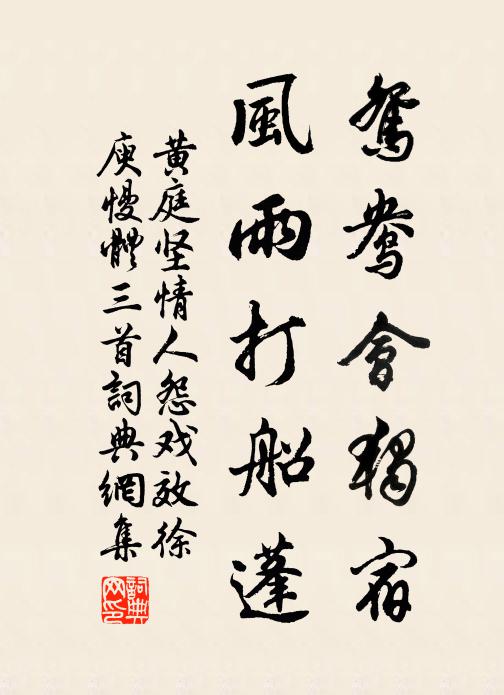 鴛鴦會獨宿
風雨打船蓬
黄庭坚情人怨戏效徐
庾慢體三首詞典網集
詞典
网印